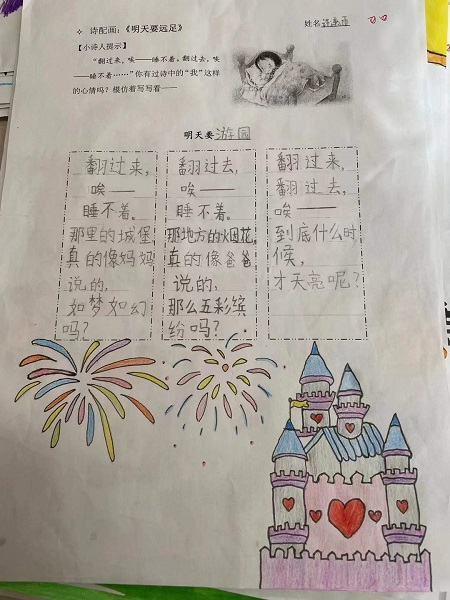 ❖ 诗配画：《明天要远足》
姓名
【小诗人提示】
“翻过来，唉——睡不着。翻过去，唉
——睡不着……”你有过诗中的“我”这样
的心情吗？模仿着写写看——
明天要 游园
翻过来，
唉——
睡不着。
那里的城堡，
真的像妈妈
说的，
如梦如幻
吗？
翻过去，
唉——
睡不着。
那地方的烟花，
真的像爸爸
说的，
那么五彩缤
纷吗？
翻过来，
翻过去，
唉——
到底什么时
候，
才天亮呢？